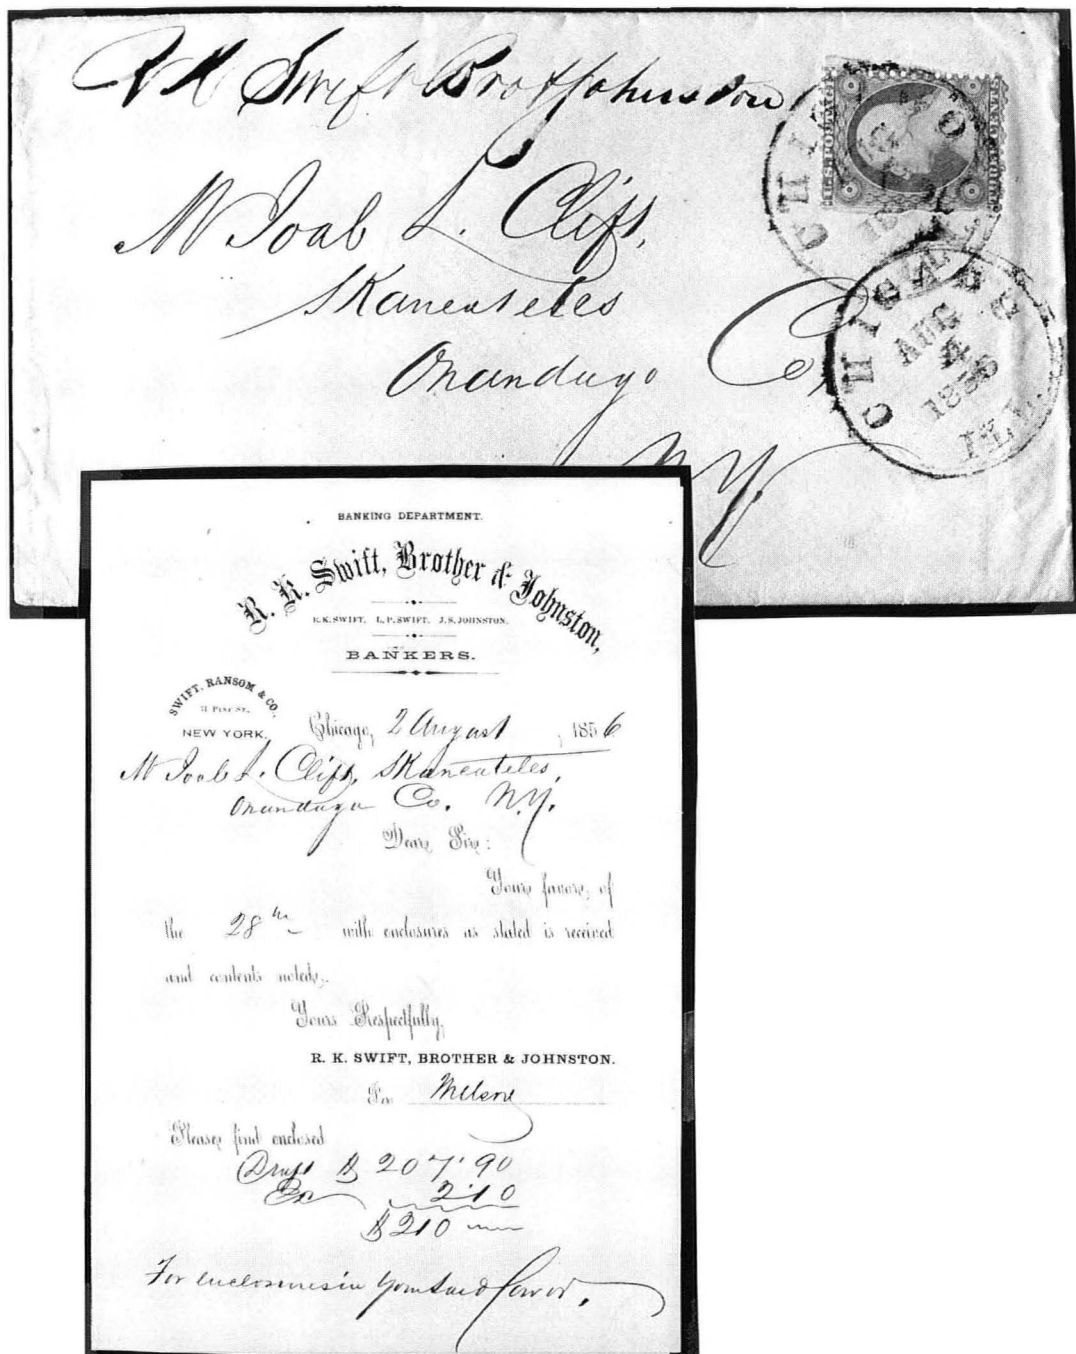 R K Swift Brot & Johnston
M Joab L. Clift,
Skaneateles
Onandaga Co,
N.Y.
U.S. POSTAGE
THREE CENTS
CHICAGO
AUG
4
1856
ILL.
BANKING DEPARTMENT.
R. K. Swift, Brother & Johnston,
R.K. SWIFT, L.P. SWIFT, J.S. JOHNSTON.
BANKERS.
SWIFT, RANSOM & CO.,
PINE ST.,
NEW YORK.
Chicago, 2 August, 1856
M Joab L. Clift, Skaneateles,
Onandaga Co. N.Y.
Dear Sir:
Your favor, of
the 28th with enclosures as stated is received
and contents noted,
Yours Respectfully,
R. K. SWIFT, BROTHER & JOHNSTON.
Per
Please find enclosed
Draft $ 207.90
Ex 2.10
$ 210
For enclosures in your said favor.